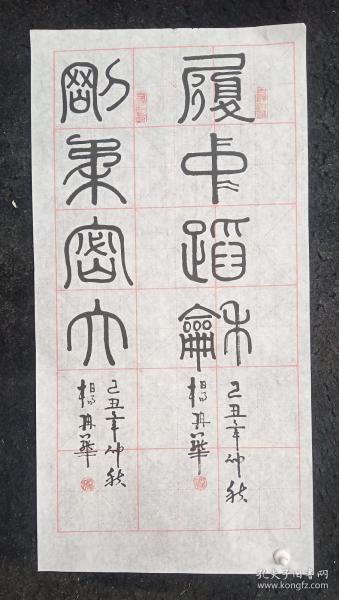 履中蹈龢
己丑年仲秋
楊再華
剛柔密
己丑年仲秋
楊再華
孔夫子旧书网